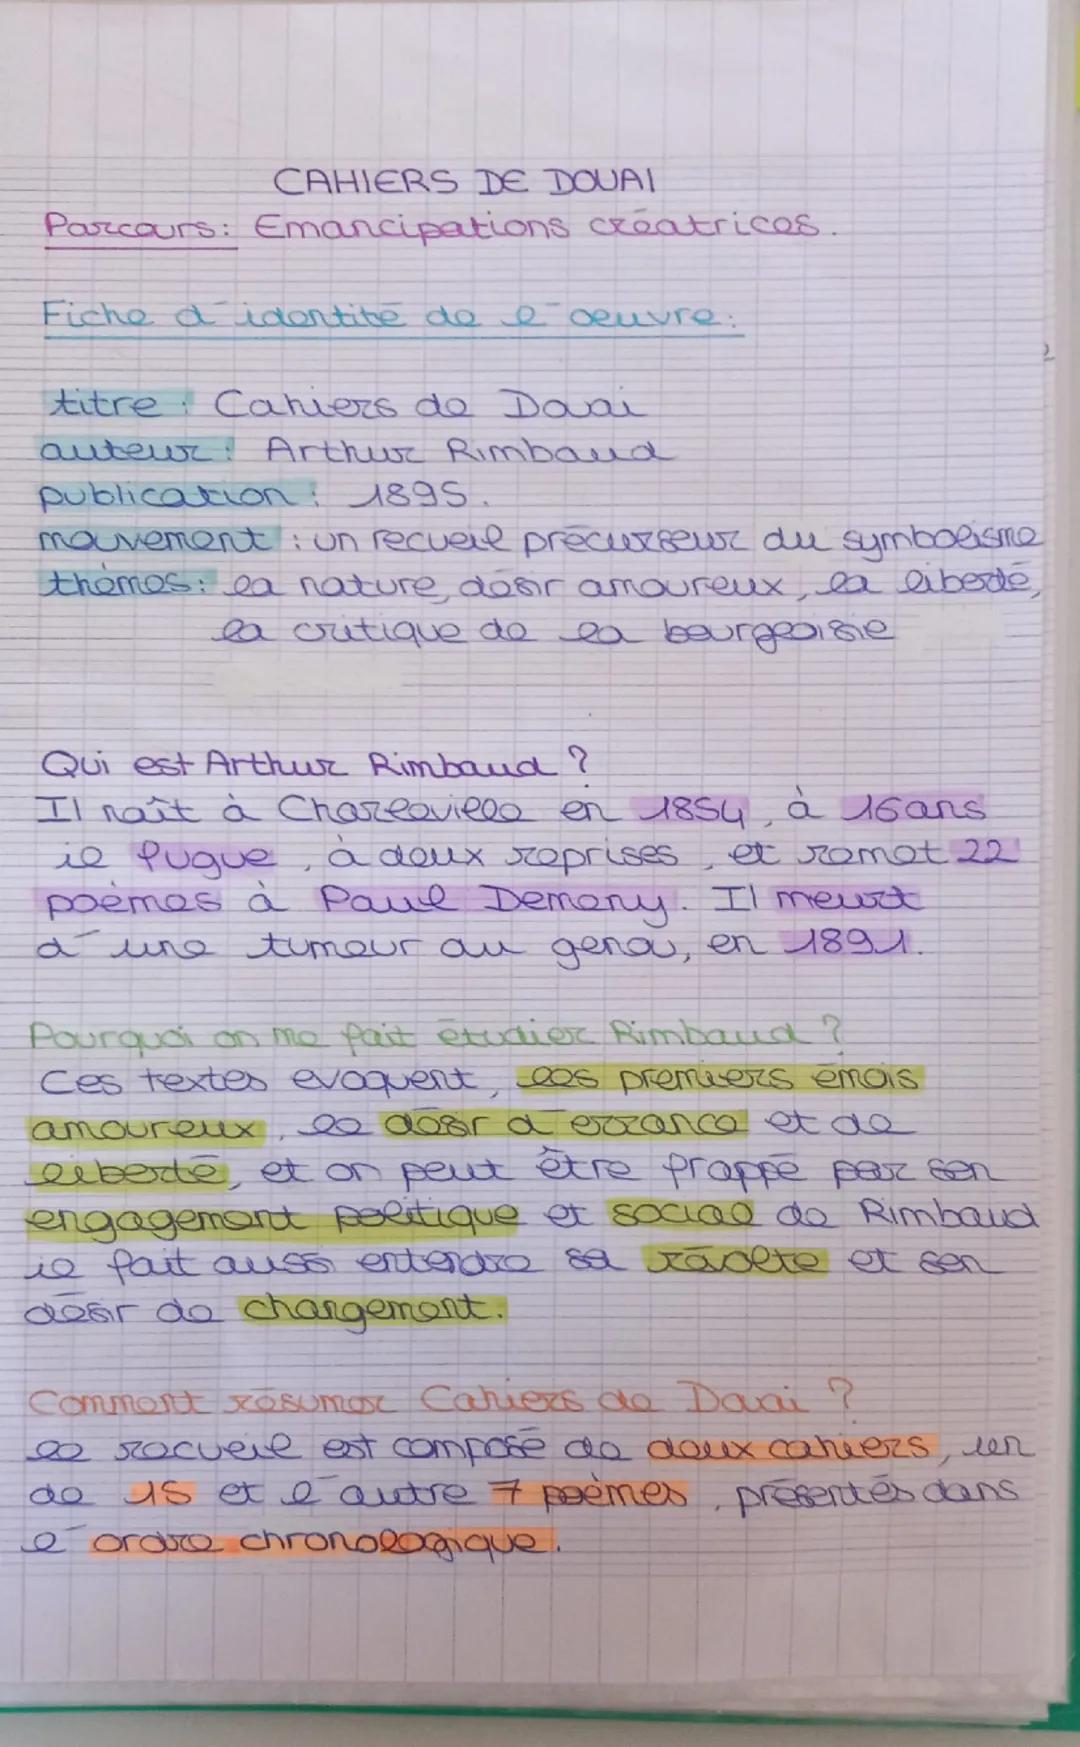 CAHIERS DE DOUAI
Parcours: Emancipations créatrices.
Fiche d'identité de l'oeuvre:
titre : Cahiers de Douai
auteur: Arthur Rimbaud
publication: 1895.
mouvement : un recueil précurseur du symbolisme
thèmes: la nature, désir amoureux, la liberté,
la critique de la bourgeoisie
Qui est Arthur Rimbaud ?
Il naît à Charleville en 1854, à 16 ans
il fugue, à deux reprises, et remet 22
poèmes à Paul Demeny. Il meurt
d'une tumeur au genou, en 1891.
Pourquoi on me fait étudier Rimbaud ?
Ces textes évoquent, les premiers émois
amoureux, le désir d'errance et de
liberté, et on peut être frappé par son
engagement politique et social de Rimbaud
il fait aussi entendre sa révolte et son
désir de changement.
Comment résumer Cahiers de Douai ?
le recueil est composé de deux cahiers, un
de 15 et l'autre 7 poèmes, présentés dans
l'ordre chronologique.